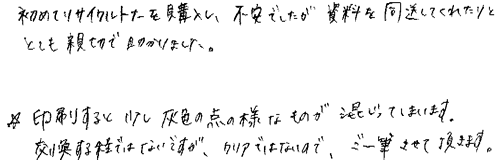 初めてリサイクルトナーを購入し、不安でしたが 資料を同送してくれたりと
とても親切で助かりました。
※ 印刷すると 少し灰色の点の様なものが 混じってしまいます。
交換する程ではないですが、クリアではないので、ご一筆させて頂きます。